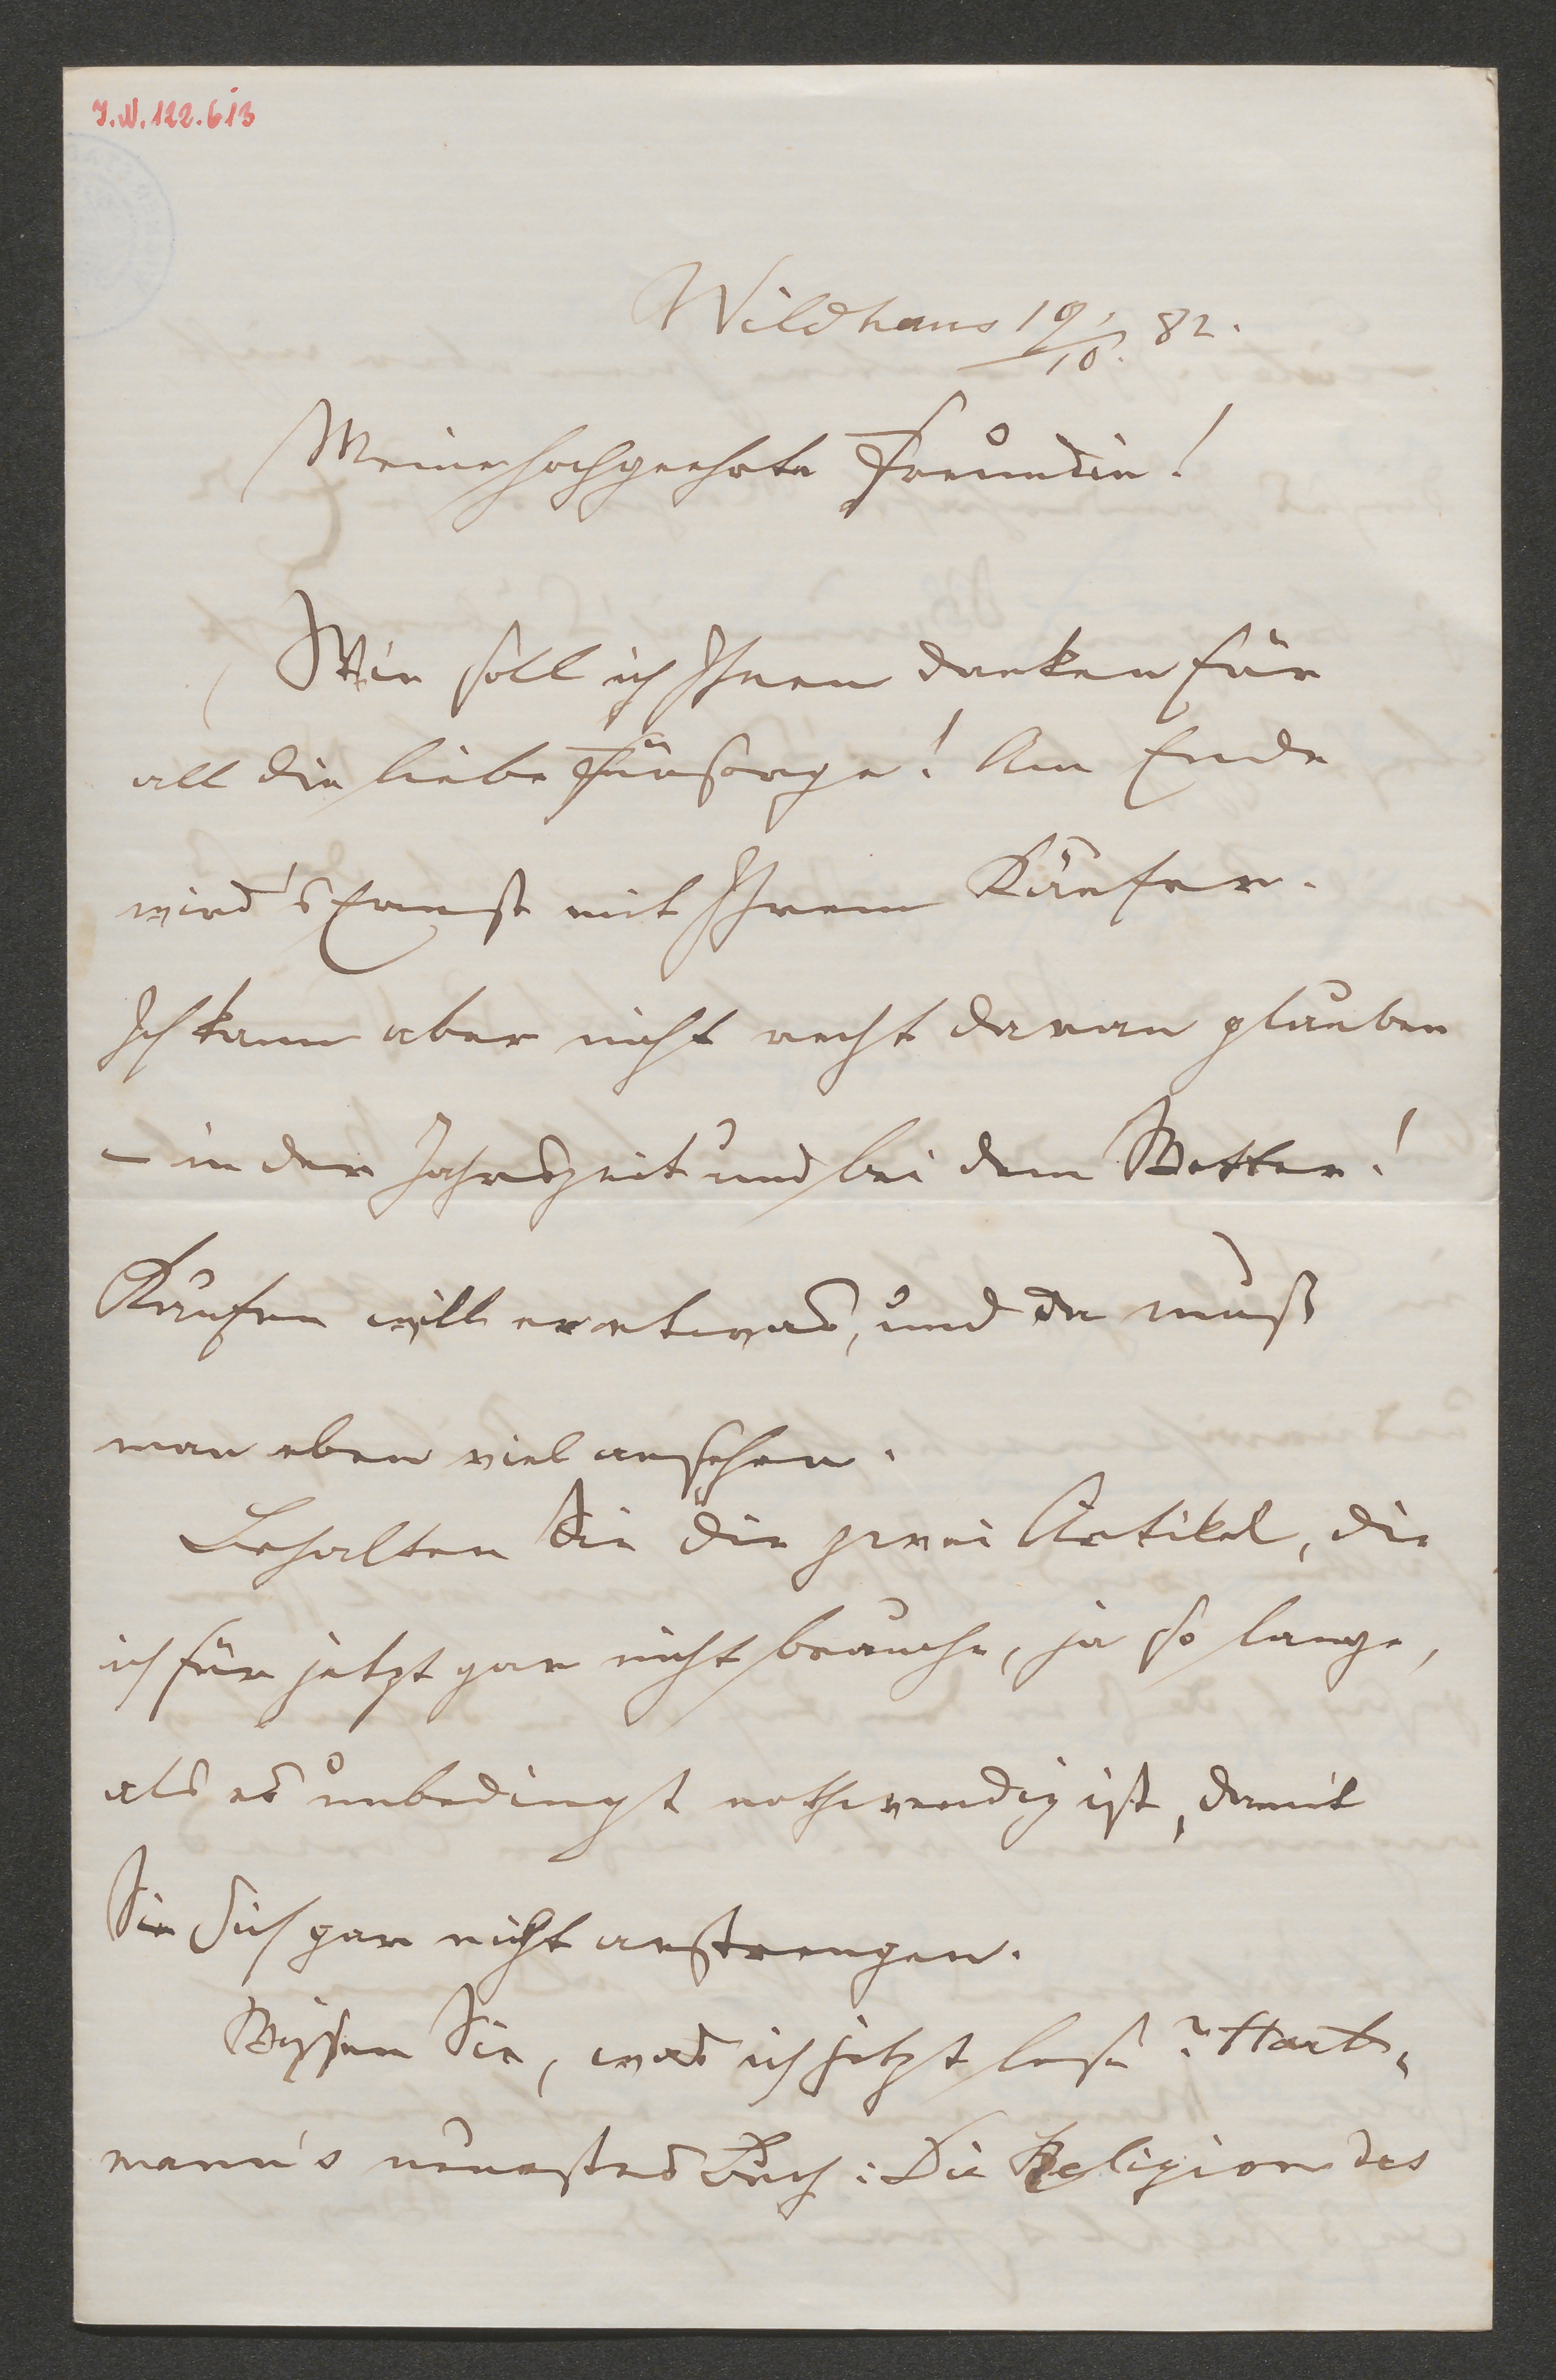 I.N. 122.613
Wildhaus 19./10. 82.
Meine hochgeehrte Freundin!
Wie soll ich Ihnen danken für
all die liebe Fürsorge! Am Ende
wird's Ernst mit Ihrem Käufer.
Ich kann aber nicht recht daran glauben
– in der Jahreszeit und bei dem Wetter!
Kaufen will er etwas, und da muß
man eben viel ansehen.
Behalten Sie die zwei Artikel, die
ich für jetzt gar nicht brauche, ja so lange,
als es unbedingt nothwendig ist, damit
Sie Sich gar nicht anstrengen.
Wissen Sie, was ich jetzt lese? Hart-
mann's neuestes Buch: Die Religion des